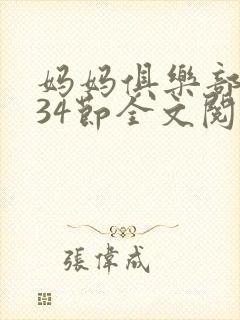 妈妈俱樂部
34節全文閱
張偉成